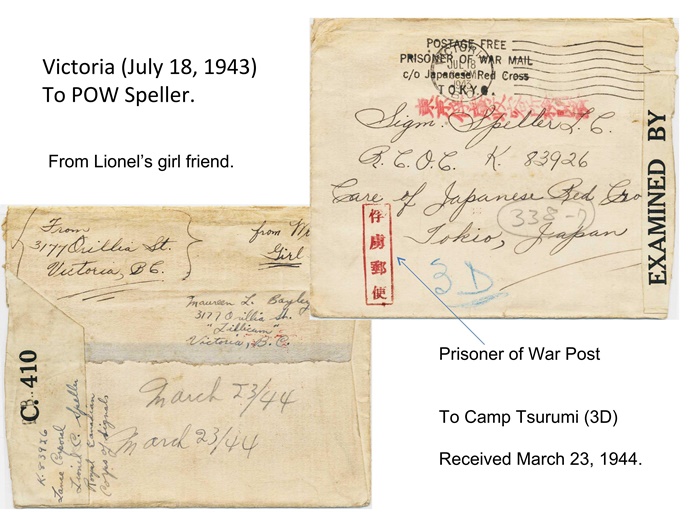 Victoria (July 18, 1943)
To POW Speller.
From Lionel's girl friend.
POSTAGE FREE
PRISONER OF WAR MAIL
c/o Japanese Red Cross
TOKYO.
VICTORIA
JUL 18
1943
Sigm. Speller L. C.
R.C.O.C. K. 83926
Care of Japanese Red Cro
Tokio, Japan
338-7
3D
俘虜郵便
EXAMINED BY
From
3177 Orillia St.
Victoria, B.C.
from
Girl
Maureen L. Bayley
3177 Orillia St.
"Tillicum"
Victoria, B.C.
C. 410
March 23/44
March 23/44
K-83926
Lance Corporal
Lionel C. Speller
Royal Canadian
Corps of Signals
Prisoner of War Post
To Camp Tsurumi (3D)
Received March 23, 1944.